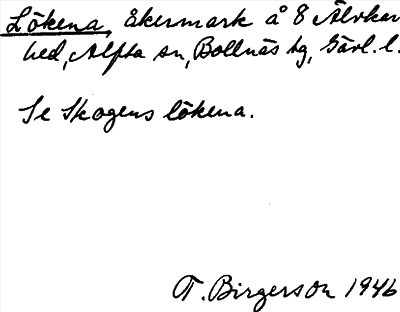 Lökena, åkermark å 8 Älvkar
hed, Alfta sn, Bollnäs tg, Gävl. l.
Se Skogens lökena.
T. Birgerson 1946